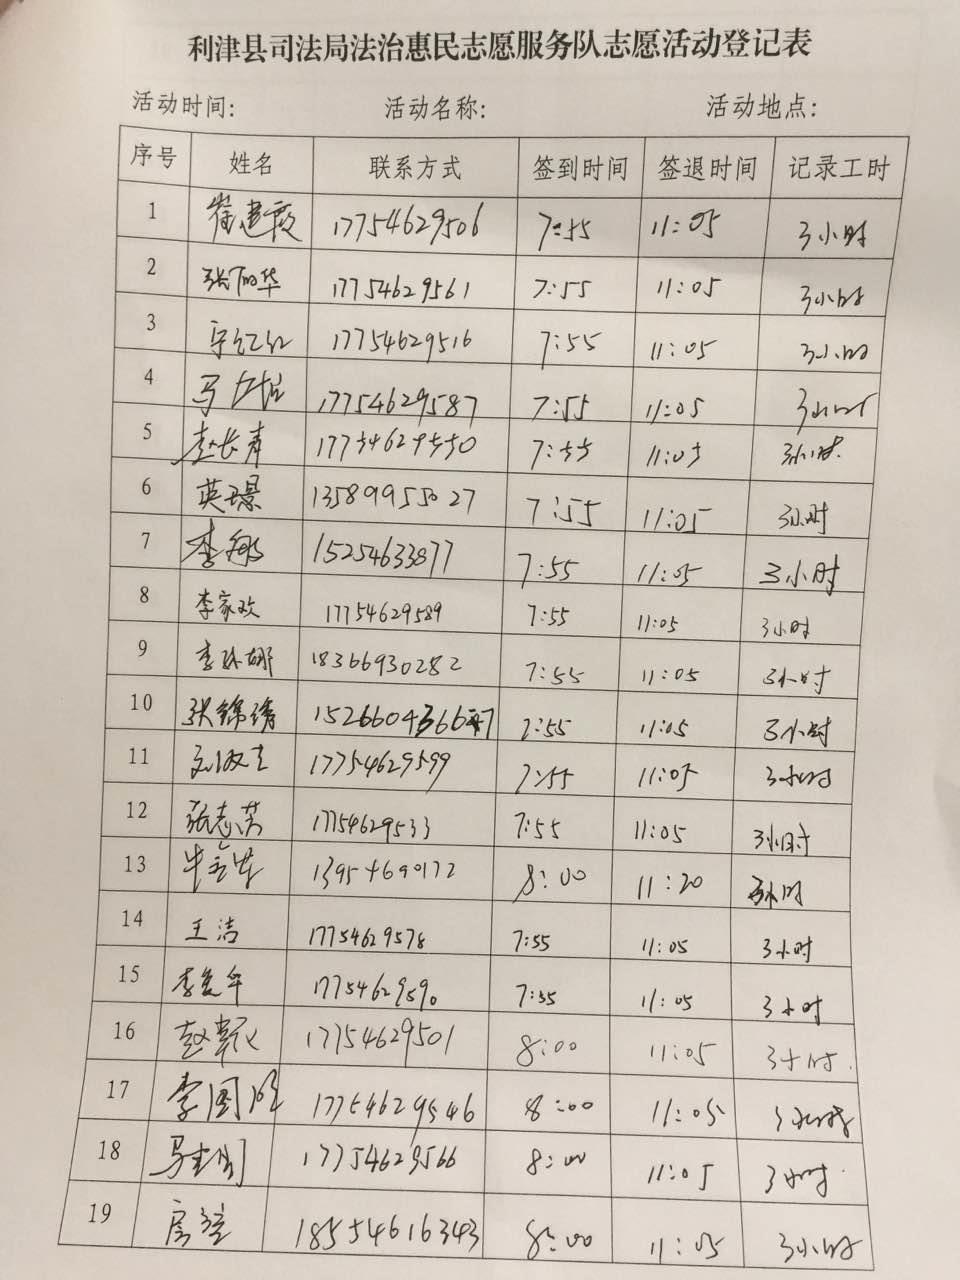 利津县司法局法治惠民志愿服务队志愿活动登记表
活动时间: 活动名称: 活动地点:
序号 姓名 联系方式 签到时间 签退时间 记录工时
1 崔建霞 17754629506 7:55 11:05 3小时
2 张丽华 17754629561 7:55 11:05 3小时
3 17754629516 7:55 11:05 3小时
4 马 17754629587 7:55 11:05 3小时
5 赵长青 17754629550 7:55 11:05 3小时
6 英璟 13589955027 7:55 11:05 3小时
7 李 15254633877 7:55 11:05 3小时
8 李家欢 17754629589 7:55 11:05 3小时
9 李琳娜 18366930282 7:55 11:05 3小时
10 张锦绣 7:55 11:05 3小时
11 17754629599 7:55 11:05 3小时
12 张志芳 17754629533 7:55 11:05 3小时
13 13954690172 8:00 11:20 3小时
14 王洁 17754629578 7:55 11:05 3小时
15 李 17754629590 7:55 11:05 3小时
16 赵 17754629501 8:00 11:05 3小时
17 李国 17754629546 8:00 11:05 3小时
18 马 17754629566 8:00 11:05 3小时
19 房 18554616343 8:00 11:05 3小时